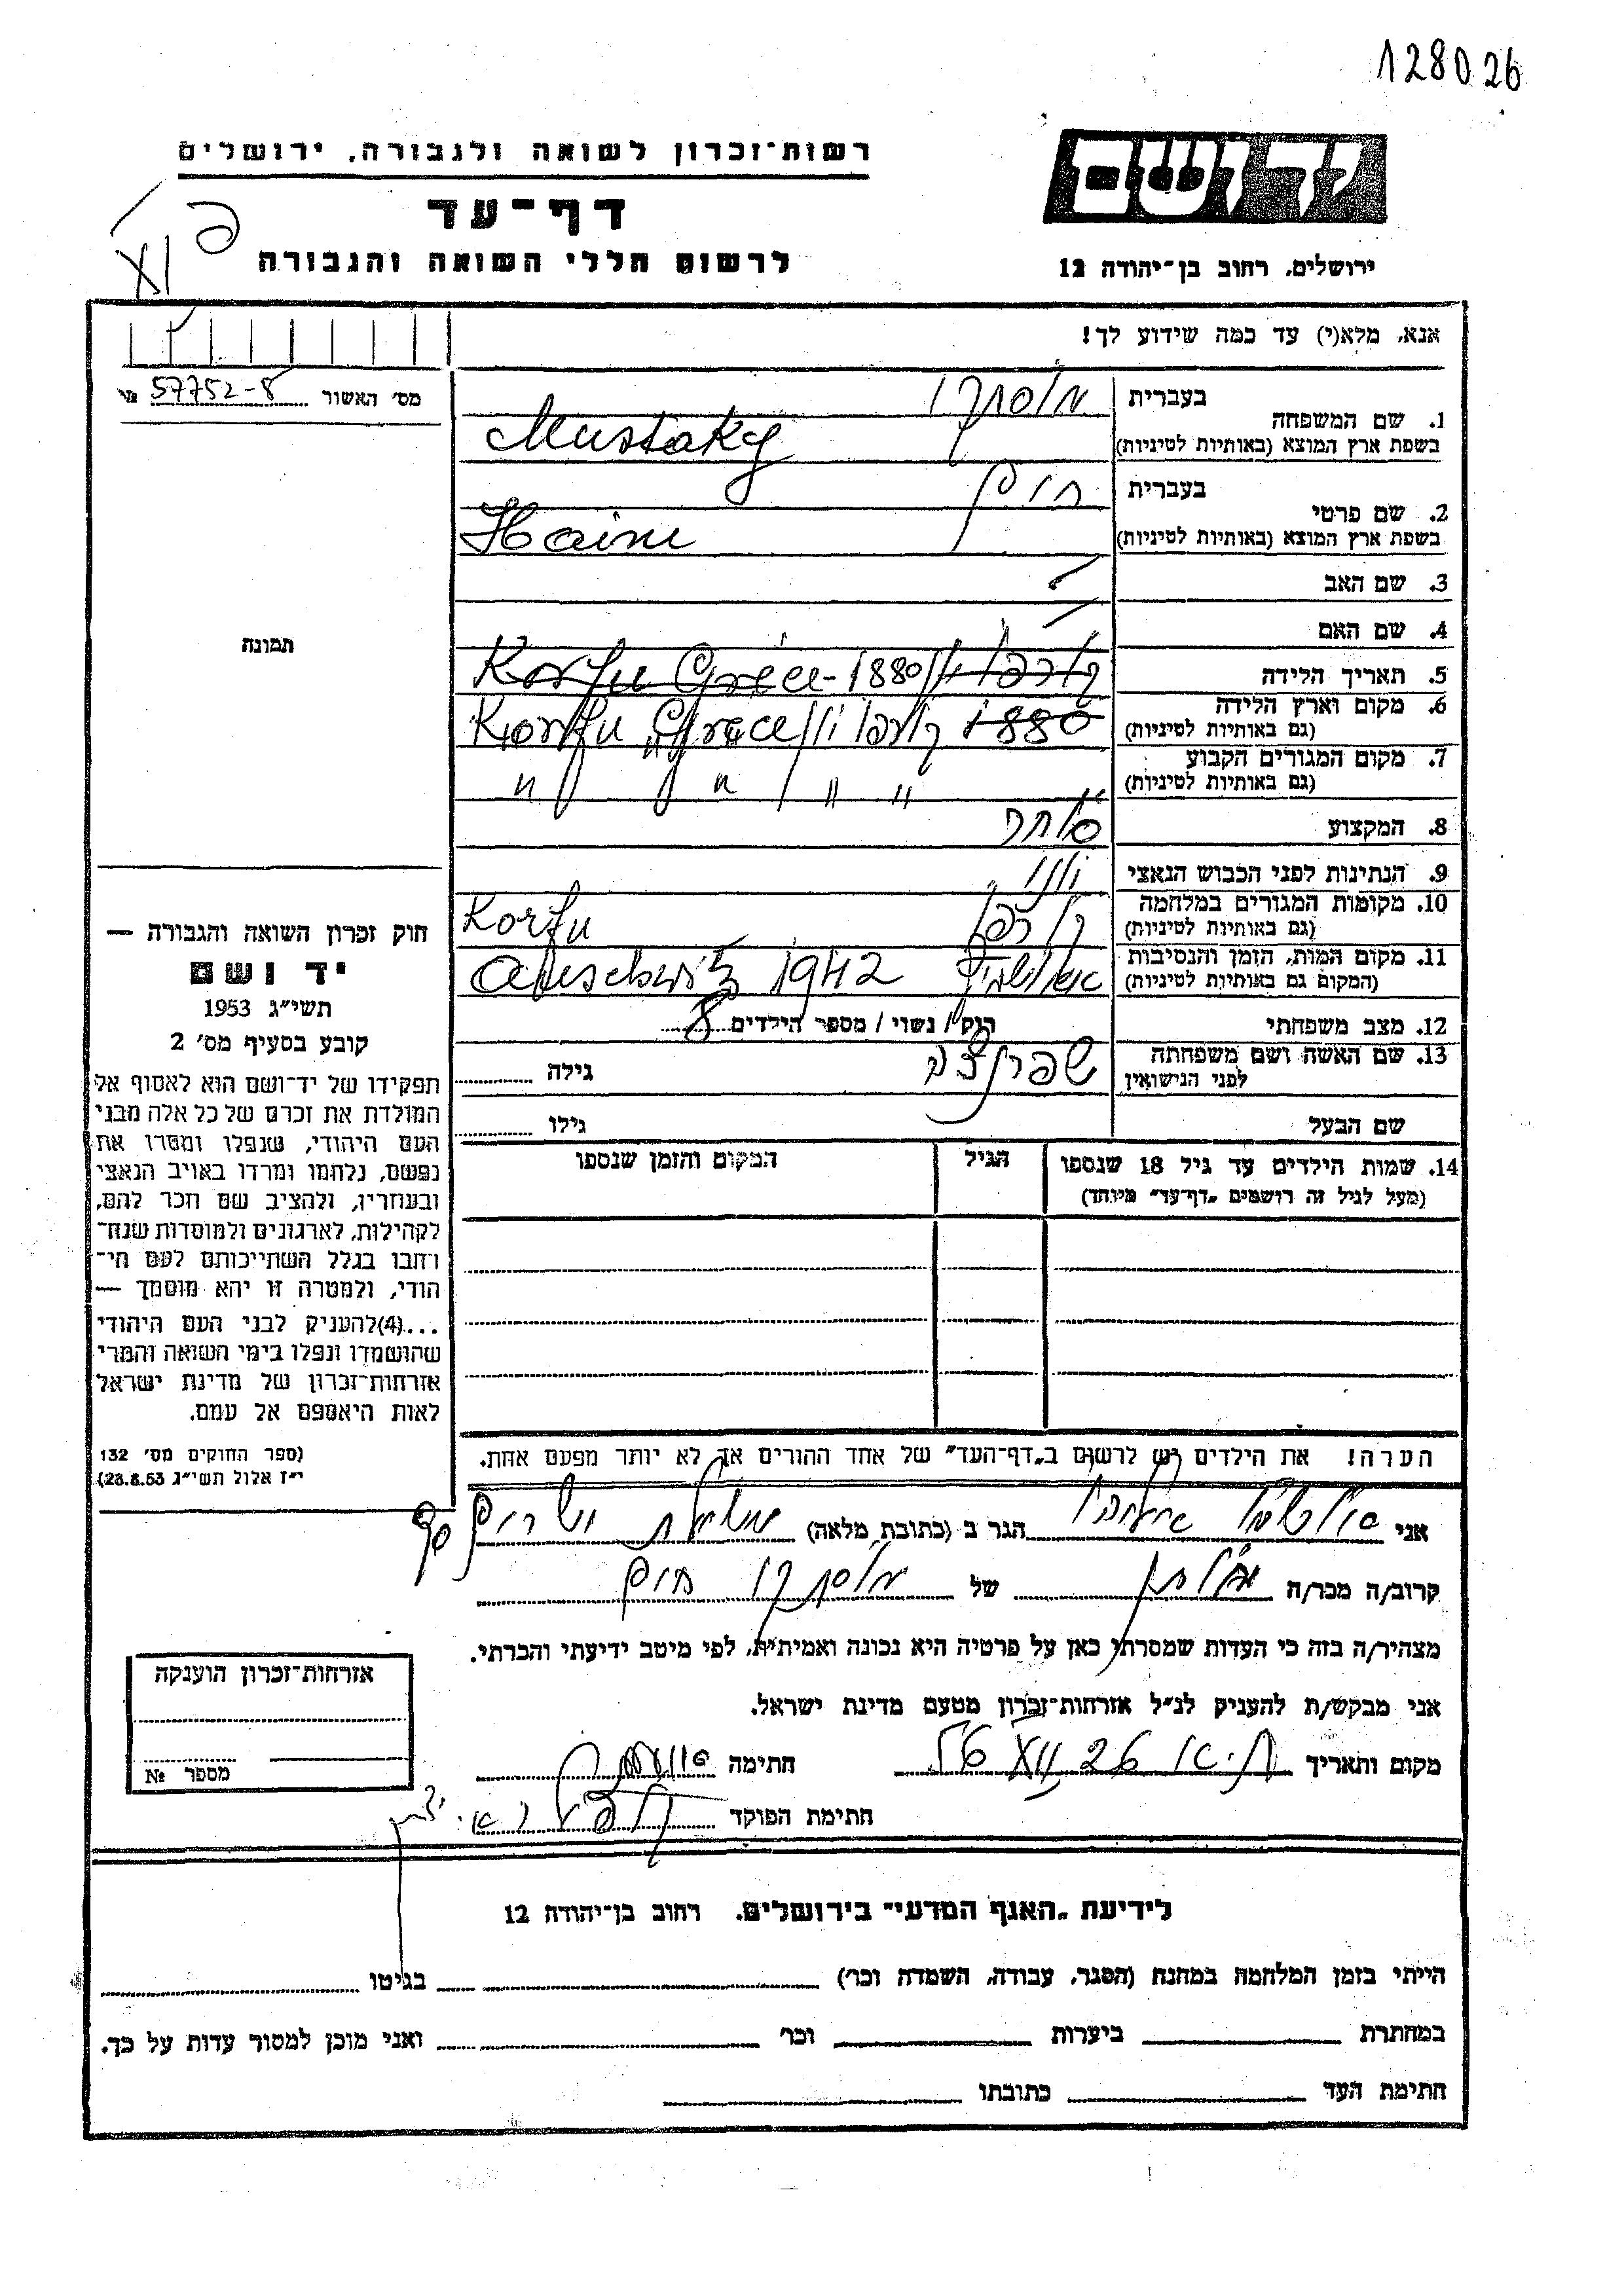 128026
יד ושם
רשות־זכרון לשואה ולגבורה, ירושלים
דף־עד
לרשום חללי השואה והגבורה
ירושלים, רחוב בן־יהודה 12
אנא, מלא(י) עד כמה שידוע לך!
מס׳ האשור 57752-8 №
1. שם המשפחה
בעברית מוסתקי
בשפת ארץ המוצא (באותיות לטיניות) Mustaky
2. שם פרטי
בעברית חיים
בשפת ארץ המוצא (באותיות לטיניות) Haim
3. שם האב
4. שם האם
5. תאריך הלידה קורפו יון 1880 - Korfu Grèce
6. מקום וארץ הלידה
(גם באותיות לטיניות) 1880 קורפו יון Korfu Grèce
7. מקום המגורים הקבוע
(גם באותיות לטיניות) " " " "
8. המקצוע סוחר
9. הנתינות לפני הכבוש הנאצי יוני
10. מקומות המגורים במלחמה
(גם באותיות לטיניות) קורפו Korfu
11. מקום המות, הזמן והנסיבות
(המקום גם באותיות לטיניות) אושויץ 1942 Auschwitz
12. מצב משפחתי רווק / נשוי / מספר הילדים 8
13. שם האשה ושם משפחתה
לפני הנישואין גילה
שם הבעל גילו
14. שמות הילדים עד גיל 18 שנספו
(מעל לגיל זה רושמים „דף־עד” מיוחד)
הגיל
המקום והזמן שנספו
הערה! את הילדים יש לרשום ב„דף־העד” של אחד ההורים אך לא יותר מפעם אחת.
תמונה
חוק זכרון השואה והגבורה —
יד ושם
תשי״ג 1953
קובע בסעיף מס׳ 2
תפקידו של יד־ושם הוא לאסוף אל
המולדת את זכרם של כל אלה מבני
העם היהודי, שנפלו ומסרו את
נפשם, נלחמו ומרדו באויב הנאצי
ובעוזריו, ולהציב שם וזכר להם,
לקהילות, לארגונים ולמוסדות שנח־
רבו בגלל השתייכותם לעם הי־
הודי, ולמטרה זו יהא מוסמך —
...(4)להעניק לבני העם היהודי
שהושמדו ונפלו בימי השואה והמרי
אזרחות־זכרון של מדינת ישראל
לאות היאספם אל עמם.
(ספר החוקים מס׳ 132
י״ז אלול תשי״ג 28.8.53)
אני הגר ב (כתובת מלאה)
קרוב/ה מכר/ה של מוסתקי חיים
מצהיר/ה בזה כי העדות שמסרתי כאן על פרטיה היא נכונה ואמיתית, לפי מיטב ידיעתי והכרתי.
אני מבקש/ת להעניק לנ״ל אזרחות־זכרון מטעם מדינת ישראל.
מקום ותאריך חתימה
חתימת הפוקד
אזרחות־זכרון הוענקה
מספר №
לידיעת „האגף המדעי” בירושלים, רחוב בן־יהודה 12
הייתי בזמן המלחמה במחנה (הסגר, עבודה, השמדה וכו׳) בגיטו
במחתרת ביערות וכו׳ ואני מוכן למסור עדות על כך.
חתימת העד כתובתו